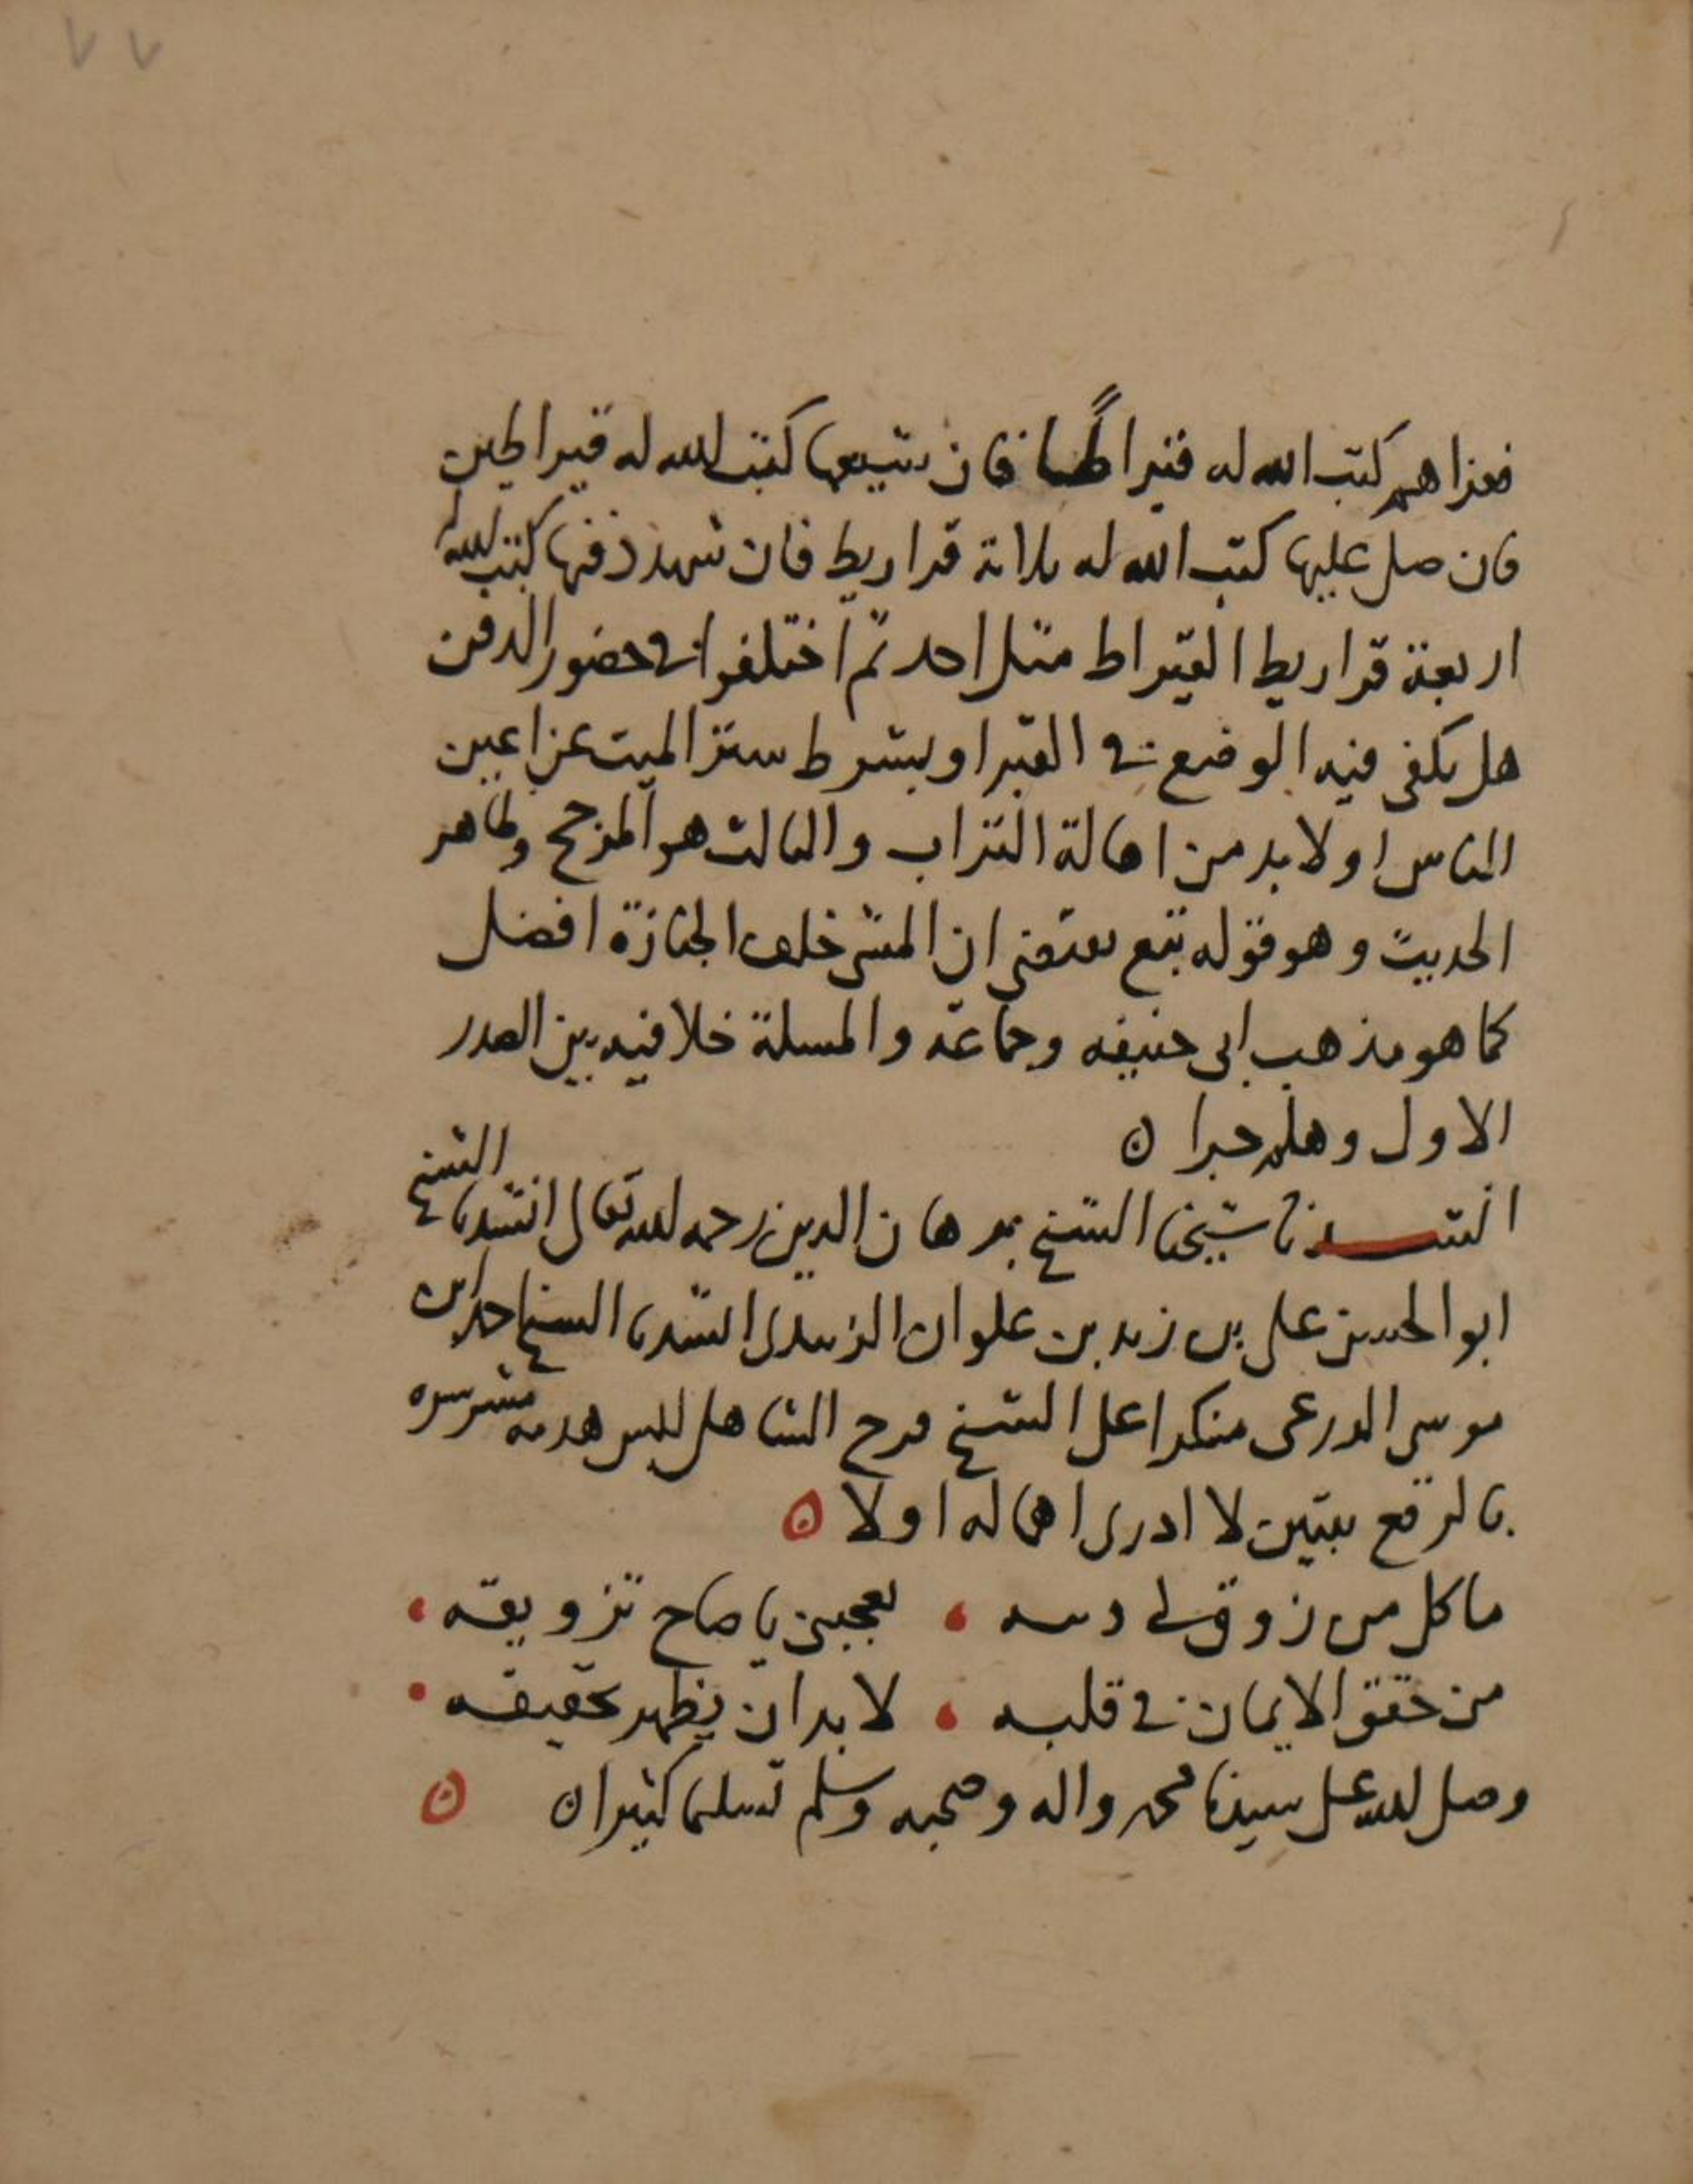 ٧٧
فعزاهم كتب الله له قيراطا فان شيعها كتب الله له قيراطين
فان صلى عليها كتب الله له ثلاثة قراريط فان شهد دفنها كتب الله له
اربعة قراريط القيراط مثل احد ثم اختلفوا في حضور الدفن
هل يكفي فيه الوضع في القبر او يشترط ستر الميت عن اعين
الناس او لا بد من اهالة التراب والثالث هو المرجح وظاهر
الحديث وهو قوله تبع يقتضي ان المشي خلف الجنازة افضل
كما هو مذهب ابي حنيفه وجماعة والمسلة خلافيه بين الصدر
الاول وهلم جرا ن
انشدنا شيخنا الشيخ برهان الدين رحمه الله تعالى انشدنا الشيخ
ابو الحسن علي بن زيد بن علوان الزبيدي انشدنا الشيخ احمد بن
موسى الدرعي منكرا على الشيخ فرح الشاهل للبس هدمه
بالرقع بيتين لا ادري اهما له او لا ن
ما كل من زوق لي دسه ، يعجبني يا صاح تزويقه ،
من حقق الايمان في قلبه ، لا بد ان يظهر تحقيقه .
وصلى الله على سيدنا محمد واله وصحبه وسلم تسليما كثيرا ن ن